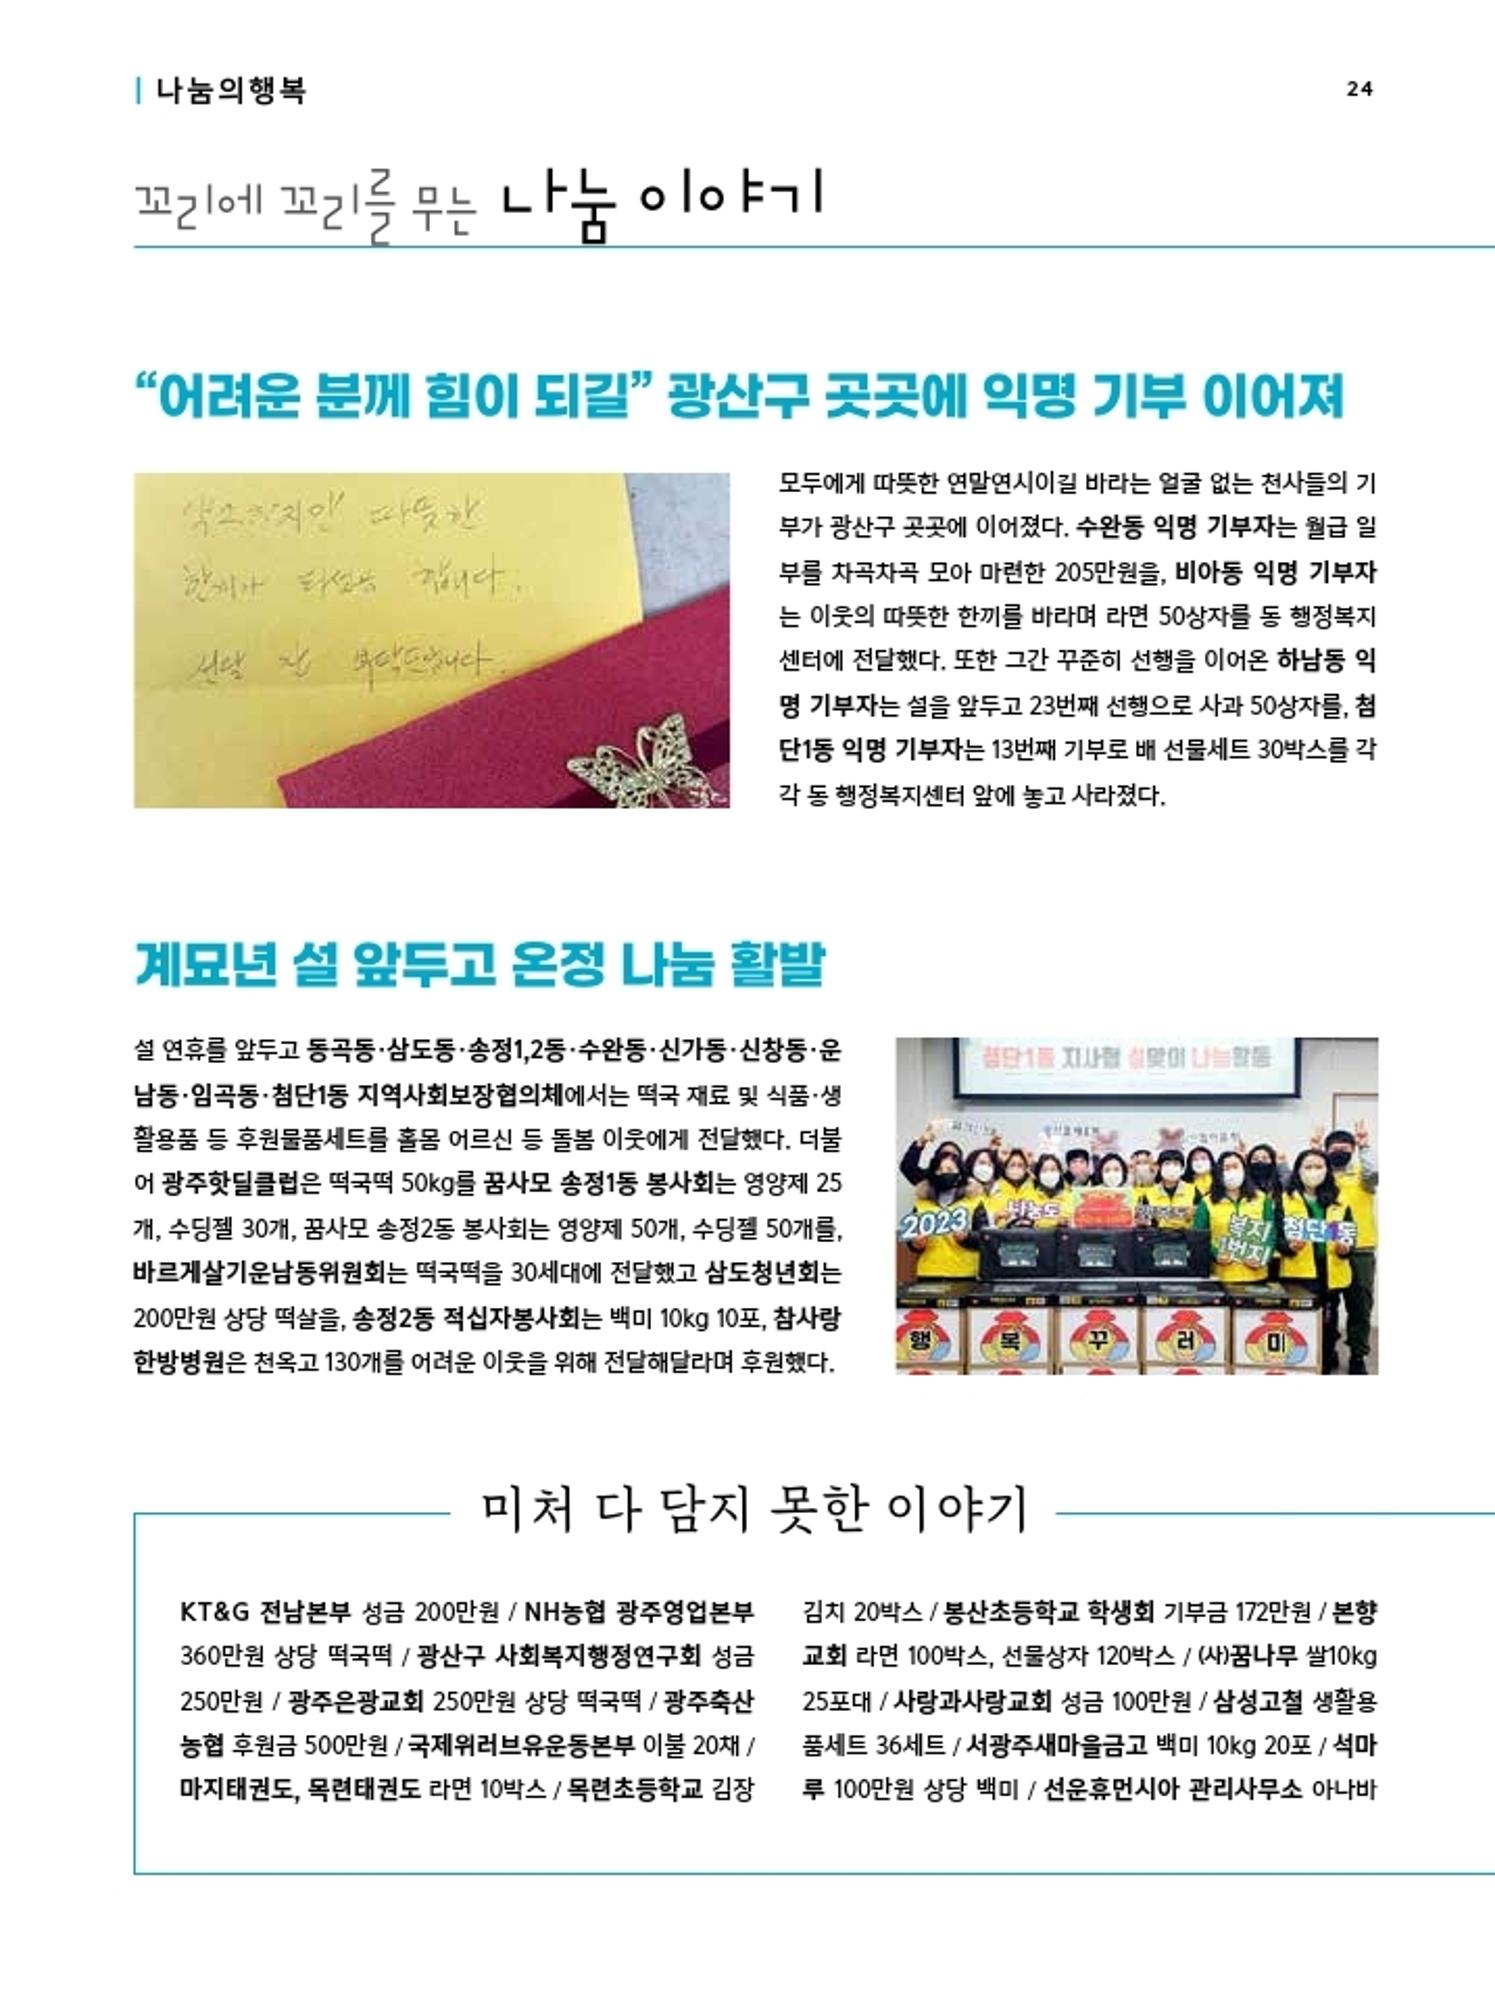 나눔의행복
24
꼬리에 꼬리를 무는 나눔 이야기
“어려운 분께 힘이 되길” 광산구 곳곳에 익명 기부 이어져
약소하지만 따뜻한
한끼가 되셨음 합니다.
전달 잘 부탁드립니다.
모두에게 따뜻한 연말연시이길 바라는 얼굴 없는 천사들의 기
부가 광산구 곳곳에 이어졌다. 수완동 익명 기부자는 월급 일
부를 차곡차곡 모아 마련한 205만원을, 비아동 익명 기부자
는 이웃의 따뜻한 한끼를 바라며 라면 50상자를 동 행정복지
센터에 전달했다. 또한 그간 꾸준히 선행을 이어온 하남동 익
명 기부자는 설을 앞두고 23번째 선행으로 사과 50상자를, 첨
단1동 익명 기부자는 13번째 기부로 배 선물세트 30박스를 각
각 동 행정복지센터 앞에 놓고 사라졌다.
계묘년 설 앞두고 온정 나눔 활발
설 연휴를 앞두고 동곡동·삼도동·송정1,2동·수완동·신가동·신창동·운
남동·임곡동·첨단1동 지역사회보장협의체에서는 떡국 재료 및 식품·생
활용품 등 후원물품세트를 홀몸 어르신 등 돌봄 이웃에게 전달했다. 더불
어 광주핫딜클럽은 떡국떡 50kg를 꿈사모 송정1동 봉사회는 영양제 25
개, 수딩젤 30개, 꿈사모 송정2동 봉사회는 영양제 50개, 수딩젤 50개를,
바르게살기운남동위원회는 떡국떡을 30세대에 전달했고 삼도청년회는
200만원 상당 떡살을, 송정2동 적십자봉사회는 백미 10kg 10포, 참사랑
한방병원은 천옥고 130개를 어려운 이웃을 위해 전달해달라며 후원했다.
첨단1동 지사협 설맞이 나눔활동
2023
나눔도
복지
1번지
첨단1동
행 복 꾸 러 미
미처 다 담지 못한 이야기
KT&G 전남본부 성금 200만원 / NH농협 광주영업본부
360만원 상당 떡국떡 / 광산구 사회복지행정연구회 성금
250만원 / 광주은광교회 250만원 상당 떡국떡 / 광주축산
농협 후원금 500만원 / 국제위러브유운동본부 이불 20채 /
마지태권도, 목련태권도 라면 10박스 / 목련초등학교 김장
김치 20박스 / 봉산초등학교 학생회 기부금 172만원 / 본향
교회 라면 100박스, 선물상자 120박스 / (사)꿈나무 쌀10kg
25포대 / 사랑과사랑교회 성금 100만원 / 삼성고철 생활용
품세트 36세트 / 서광주새마을금고 백미 10kg 20포 / 석마
루 100만원 상당 백미 / 선운휴먼시아 관리사무소 아나바